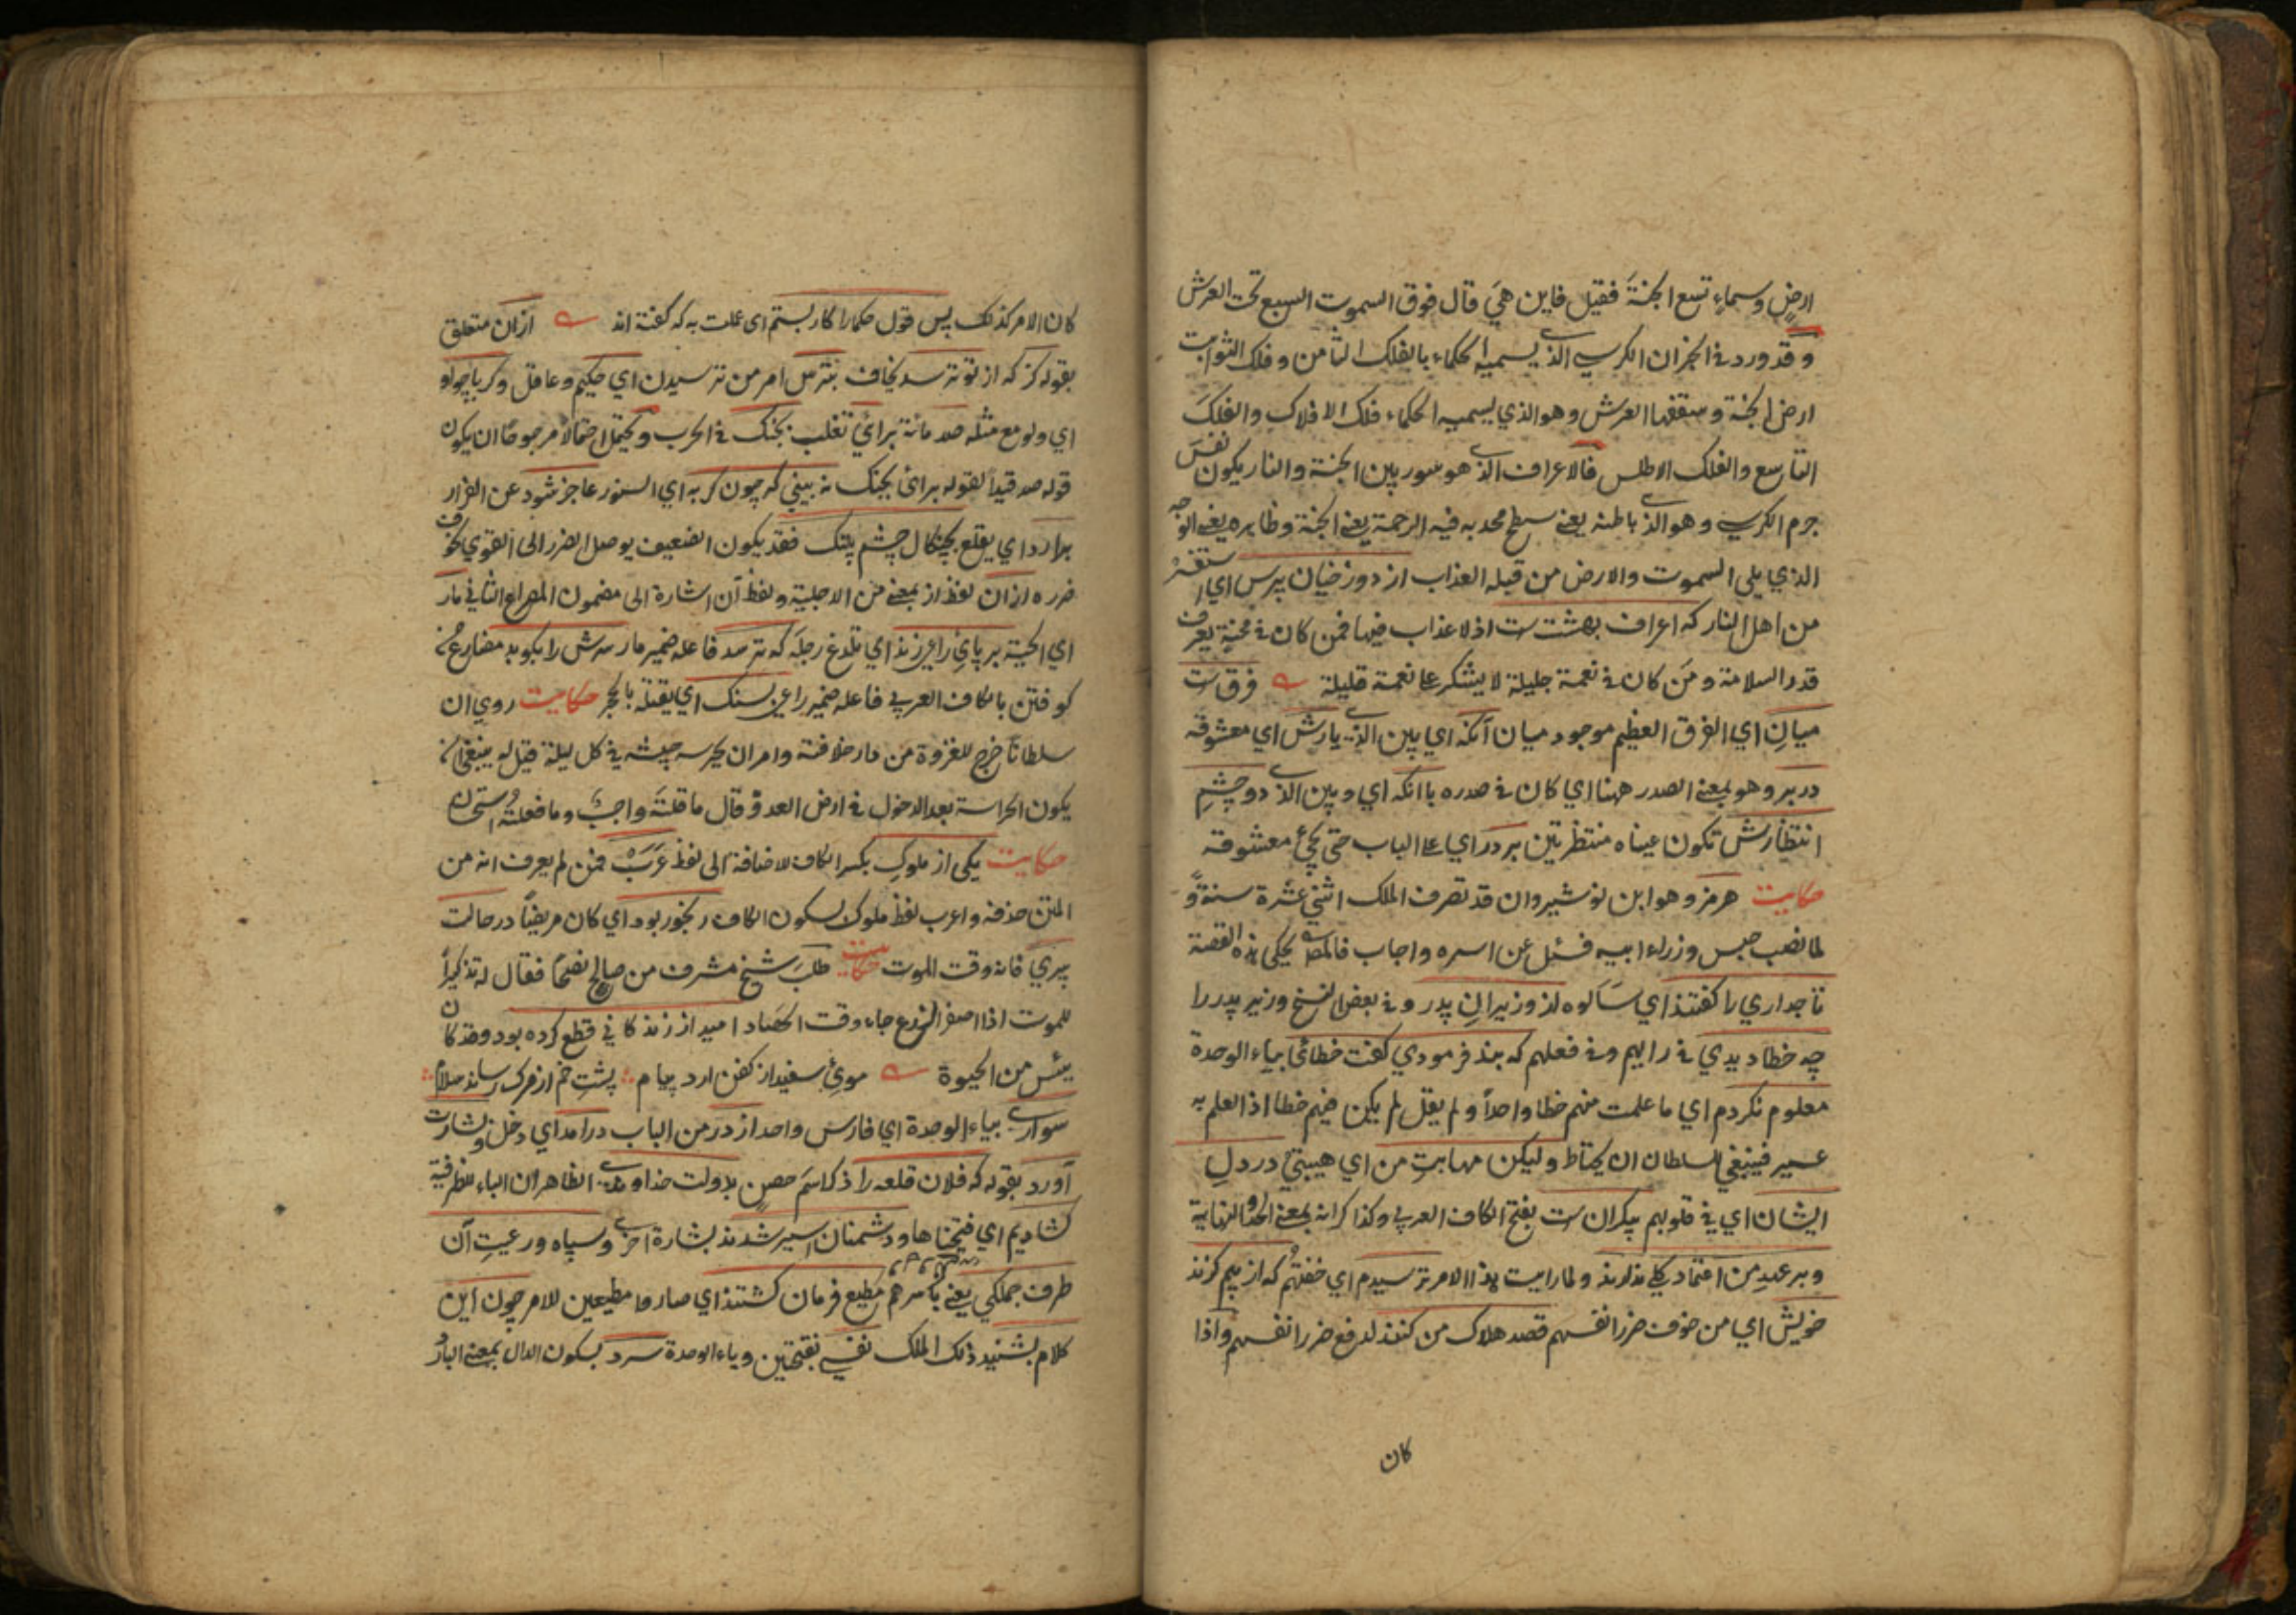 ارض وسماء تسع الجنة فقيل فاين هي قال فوق السموت السبع تحت العرش
وقد ورد في الخبر ان الكرسي الذي يسميه الحكماء بالفلك الثامن وفلك الثوابت
ارض الجنة وسقفها العرش وهو الذي يسميه الحكماء فلك الافلاك والفلك
التاسع والفلك الاطلس فالاعراف الذي هو سور بين الجنة والنار يكون نفس
جرم الكرسي وهو الذي باطنه يعني سطح محدبه فيه الرحمة يعني الجنة وظاهره يعني الوجه
الذي يلي السموت والارض من قبله العذاب از دوزخيان پرس اي استفسر
من اهل النار كه اعراف بهشت ست اذ لا عذاب فيها فمن كان في محنة يعرف
قدر السلامة ومن كان في نعمة جليلة لا يشكر على نعمة قليلة فرق ست
ميان اي الفرق العظيم موجود ميان آنكه اي بين الذي يارش اي معشوقه
در بر وهو بمعني الصدر ههنا اي كان في صدره با انكه اي وبين الذي دو چشم
انتظارش تكون عيناه منتظرتين بر در اي على الباب حتى يجئ معشوقه
حكايت هرمز وهو ابن نوشيروان قد تصرف الملك اثني عشرة سنة و
لما نصب حبس وزراء ابيه فسئل عن اسره واجاب فالمص يحكي هذه القصة
تاجداري را كفتند اي سألوه از وزيران پدر وفي بعض النسخ وزير پدر را
چه خطا ديدي في رايهم وفي فعلهم كه بند فرمودي كفت خطائي بياء الوحدة
معلوم نكردم اي ما علمت منهم خطا واحداً ولم يقل لم يكن فيهم خطا اذ العلم به
عسير فينبغي للسلطان ان يحتاط وليكن مهابت من اي هيبتي در دل
ايشان اي في قلوبهم بيكران ست بفتح الكاف العربي وكذا كرانه بمعنى الحد والنهاية
وبر عهد من اعتماد كلي ندارند ولما رايت هذا الامر ترسيدم اي خفتهم كه از بيم كزند
خويش اي من خوف ضرر انفسهم قصد هلاك من كنند لدفع ضرر انفسهم واذا
كان
كان الامر كذلك پس قول حكما را كار بستم اي عملت به كه كفته اند ازان متعلق
بقوله كز كه از تو ترسد يخاف بترس امر من ترسيدن اي حكيم وعاقل وكر با چو او
اي ولو مع مثله صد مائة برائي تغلب بجنك في الحرب ويحتمل احتمالاً مرجوحاً ان يكون
قوله صد قيداً لقوله برائي بجنك نه بيني كه چون كربه اي السنور عاجز شود عن الفرار
برارد اي يقلع بچنكال چشم پلنك فقد يكون الضعيف يوصل الضرر الى القوي لخوف
ضرره ازان لفظ از بمعنى من الاجلية ولفظ آن اشارة الى مضمون المصراع الثاني مار
اي الحية بر پاي راعي زند اي تلدغ رجله كه ترسد فاعله ضمير مار سرش را بكوبد مضارع من
كوفتن بالكاف العربي فاعله ضمير راعي بسنك اي يقتله بالحجر حكايت روي ان
سلطاناً خرج للغزوة من دار خلافته وامر ان يحرسه جيشه في كل ليلة قيل له ينبغي ان
يكون الحراسة بعد الدخول في ارض العدو قال ما قلته واجب وما فعلته استحسان
حكايت يكي از ملوك بكسر الكاف للاضافة الى لفظ عرب فمن لم يعرف انه من
المتن حذفه واعرب لفظ ملوك بسكون الكاف رنجور بود اي كان مريضاً در حالت
پيري فانه وقت الموت حكايت طلب شيخ مشرف من صالح نصحاً فقال له تذكيراً
للموت اذا اصفر الزرع جاء وقت الحصاد اميد از زندكاني قطع كرده بود وقد كان
يئس من الحيوة موئ سفيد از كفن ارد پيام پشت خم از مرك رساند سلام
سواري بياء الوحدة اي فارس واحد از در من الباب درآمد اي دخل وبشارت
آورد بقوله كه فلان قلعه را ذكر اسم حصن بدولت خداوندي الظاهر ان الباء للظرفية
كشاديم اي فتحناها ودشمنان اسير شدند بشارة اخرى وسپاه ورعيت آن
طرف جملكي يعني باسرهم مطيع فرمان كشتند اي صاروا مطيعين للامر چون اين
كلام بشنيد ذلك الملك نفسي بفتحتين وياء الوحدة سرد بسكون الدال بمعنى البارد